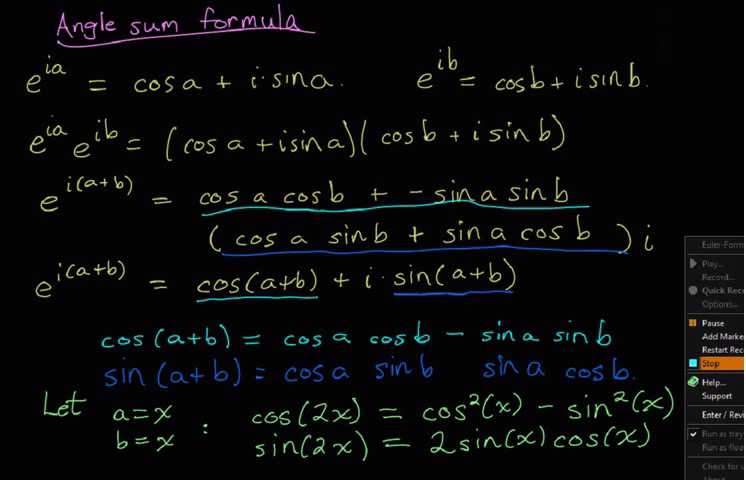 Angle sum formula
e^{ia} = cos a + i·sin a. e^{ib} = cos b + i sin b.
e^{ia} e^{ib} = (cos a + i sin a)(cos b + i sin b)
e^{i(a+b)} = cos a cos b + - sin a sin b
(cos a sin b + sin a cos b) i
e^{i(a+b)} = cos(a+b) + i·sin(a+b)
cos(a+b) = cos a cos b - sin a sin b
sin(a+b) = cos a sin b sin a cos b.
Let a=x : cos(2x) = cos²(x) - sin²(x)
b=x sin(2x) = 2sin(x)cos(x)
Euler-Form
Play...
Record...
Quick Rec
Options...
Pause
Add Marke
Restart Rec
Stop
Help...
Support
Enter / Revi
Run as tray
Run as float
Check for u